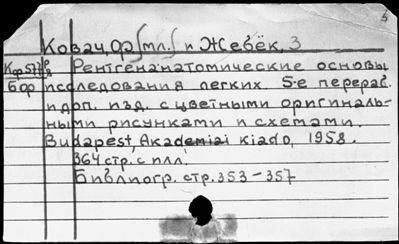 Ковач, Ф/мл./ и Жебёк, З
Рентгенанатомические основы
бор исследования легких. 5-е перераб.
и доп. изд. с цветными оригиналь-
ными рисунками и схемами.
Budapest, Akademiai Kiado, 1958.
364 стр. с илл.
Библиогр. стр. 353-357